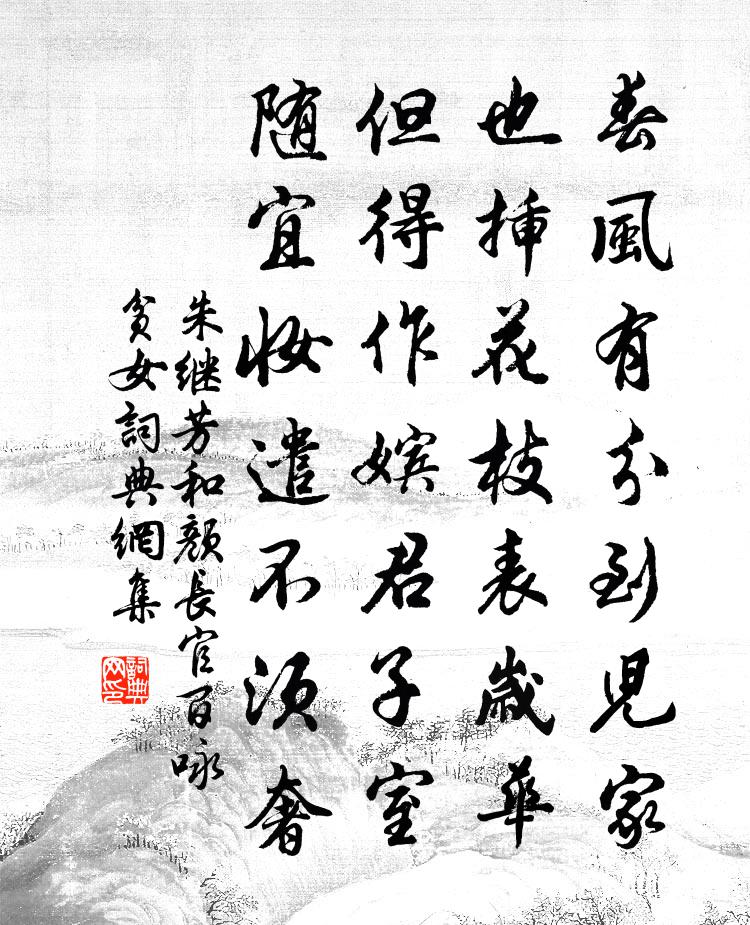 春風有分到児家
也挿花枝表歲華
但得作嬪君子室
随宜妝遣不須奢
朱继芳和顏長官百咏
貧女詞典網集
詞典網印